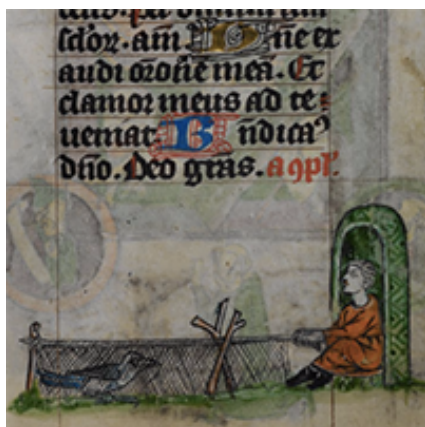 sclor·am̄ Dn̄e ex
audi or̄onē meā. Et
clamor meus ad te
ueniat Bn̄dicaꝰ
dn̄o. Deo gr̄as. a ꝯpl'.